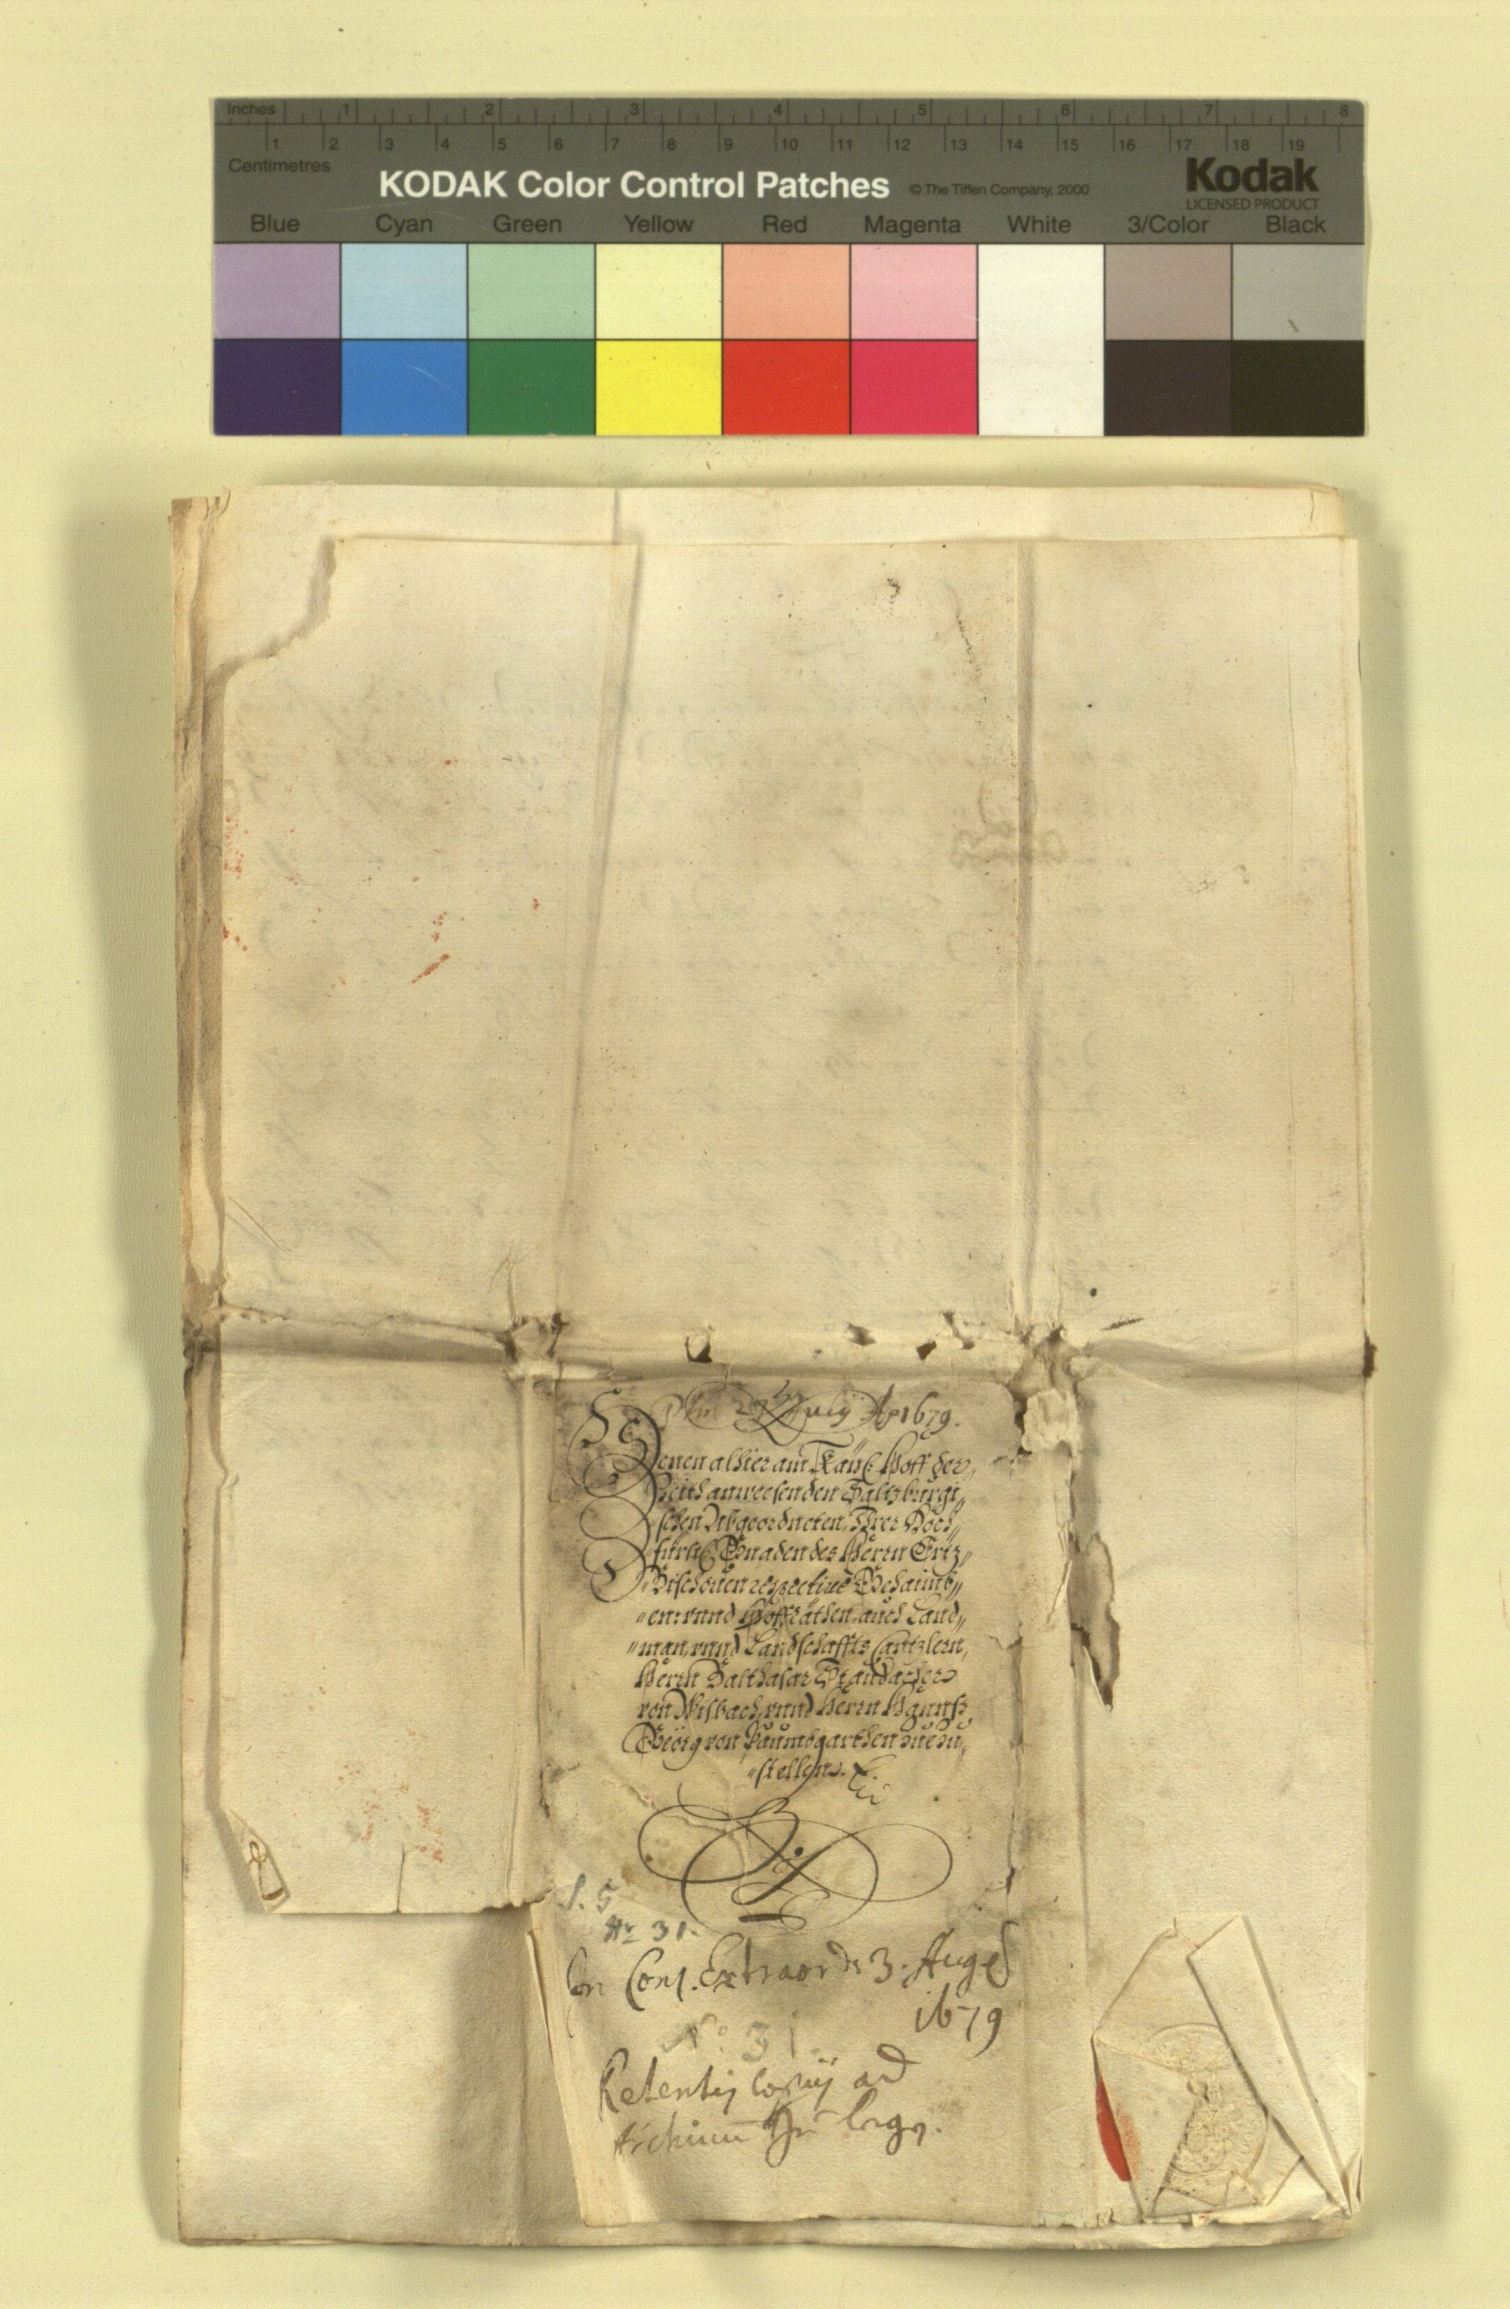 Inches 1 2 3 4 5 6 7 8
1 2 3 4 5 6 7 8 9 10 11 12 13 14 15 16 17 18 19
Centimetres
KODAK Color Control Patches © The Tiffen Company, 2000 Kodak
LICENSED PRODUCT
Blue Cyan Green Yellow Red Magenta White 3/Color Black
27 July Ao 1679.
Denen alhier am Kaÿs: Hoff der
Zeith anweesenden Saltzburgi,,
schen Abgeordneten, Ihrer Hoch,,
fürstl: Gnaden des Herrn Ertz,,
Bischouen respectiuè Gehaimb,,
,,en: vnnd Hoffräthen, auch Land,,
,,man, vnnd Landschaffts Cantzlern,
Herrn Balthasar Staudacher
von Wisbach, vnnd Herrn Hannß
Geörg von Paumbgarthen zuezu,,
,,stellen.
S. 5
Nr. 31.
Con: Extraord: 3. Aug:
1679
No: 31.
Retentis copiis ad
Archiuum